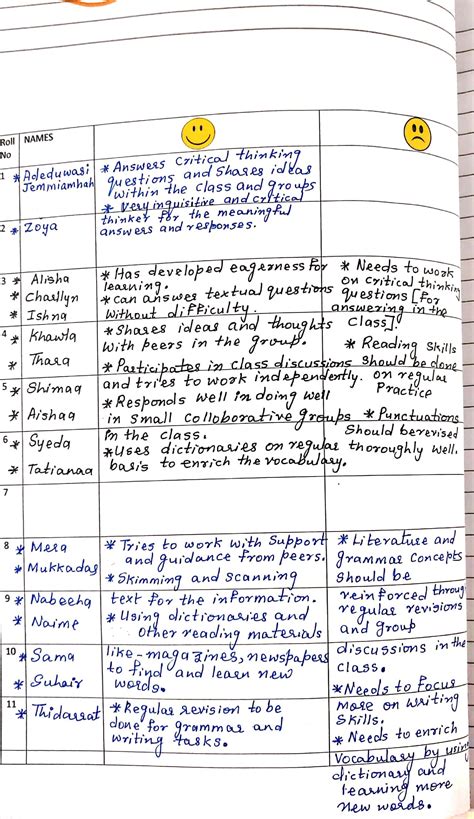 Roll No
NAMES
1 * Adeduwasi
Jemmiamhah
* Answers Critical thinking
questions and Shares ideas
within the class and groups
* Very inquisitive and critical
thinker for the meaningful
answers and responses.
2 * Zoya
3 * Alisha
* Charllyn
* Ishna
4 * Khawla
* Thara
5 * Shimaa
* Aishaa
6 * Syeda
* Tatianaa
* Has developed eagerness for
learning.
* Can answer textual questions
without difficulty.
* Shares ideas and thoughts
with peers in the group.
* Participates in class discussions
and tries to work independently.
* Responds well in doing well
in small colloborative groups
in the class.
* Uses dictionaries on regular
basis to enrich the vocabulary.
* Needs to work
on critical thinking
questions [for
answering in the
class].
* Reading Skills
should be done
on regular
Practice
* Punctuations
Should berevised
thoroughly well.
7
8 * Mera
* Mukkadas
9 * Nabeeha
* Naime
10 * Sama
* Suhair
11 * Thidarrat
* Tries to work with Support
and guidance from peers.
* Skimming and scanning
text for the information.
* Using dictionaries and
other reading materials
like - magazines, newspapers
to find and learn new
words.
* Regular revision to be
done for grammar and
writing tasks.
* Literature and
grammar concepts
should be
reinforced through
regular revisions
and group
discussions in the
class.
* Needs to Focus
More on writing
Skills.
* Needs to enrich
Vocabulary by using
dictionary and
learning more
new words.